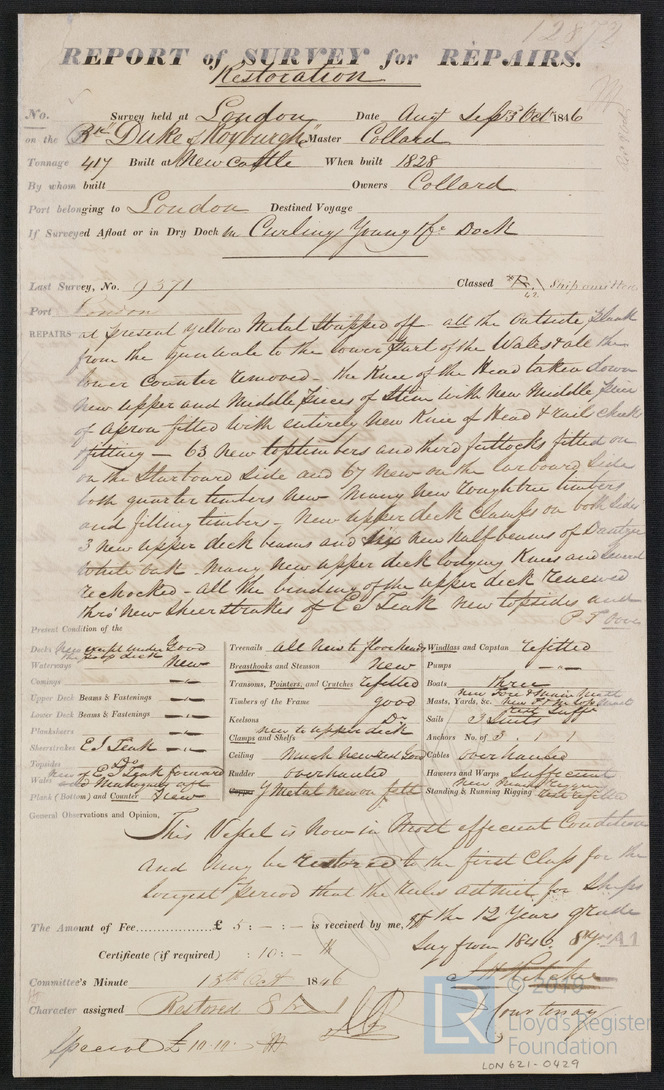 12872
REPORT of SURVEY for REPAIRS.
Restoration
No. Survey held at London Date Augt Sep 3 Oct 1846
on the Bk "Duke of Roxburgh" Master Collard
Tonnage 417 Built at New Castle When built 1828
By whom built Owners Collard
Port belonging to London Destined Voyage
If Surveyed Afloat or in Dry Dock in Curling Young & Co Dock
Last Survey, No. 9371 Classed Ship omitted
Port London
REPAIRS at present yellow Metal Stripped off all the outside Plank
from the Gunwale to the lower part of the Wales & all the
lower Counter removed - the Knee of the Head taken down
new upper and Middle pieces of Stem with new Middle piece
of apron fitted with entirely new Knee of Head & rail cheek
& fitting - 63 new toptimbers and third futtocks fitted on
on the Starboard side and 67 new on the larboard Side
both quarter timbers new Many new roughtree timbers
and filling timbers - New upper deck Clamps on both sides
3 new upper deck beams and six new half beams of Dantzic
White oak - many new upper deck lodging Knees and several
rechocked - all the binding of the upper deck renewed
thro' new Sheerstrakes of E I Teak new topsides and
P T Over
Present Condition of the
Decks New except under the Poop deck Good
Waterways New
Comings "
Upper Deck Beams & Fastenings "
Lower Deck Beams & Fastenings "
Planksheers "
Sheerstrakes E I Teak "
Topsides Do
Wales New of E I Teak forward & Mahogany aft
Plank (Bottom) and Counter New
Treenails all new to floorheads
Breasthooks and Stemson New
Transoms, Pointers, and Crutches refitted
Timbers of the Frame good
Keelsons Do
Clamps and Shelfs new to upper deck
Ceiling Much new and Good
Rudder overhauled
Copper Y Metal new on felt
Windlass and Capstan refitted
Pumps "
Boats three
Masts, Yards, &c. new Fore & Main Mast
Sails 3 Suits
Anchors No. of 3 : 1 1
Cables overhauled
Hawsers and Warps Sufficient
Standing & Running Rigging
General Observations and Opinion,
This Vessel is Now in Most efficient Condition
and May be restored to the first Class for the
longest period that the rules admit for Ships
of the 12 Years grade
Say from 1846. 8 yrs A1
The Amount of Fee £ 5 : - : - is received by me,
Certificate (if required) : 10 : -
Committee's Minute 13th Oct 1846
Character assigned Restored 8
Courtenay
Special £10-10-
© 2019
LR
Lloyd's Register
Foundation
LON 621-0429